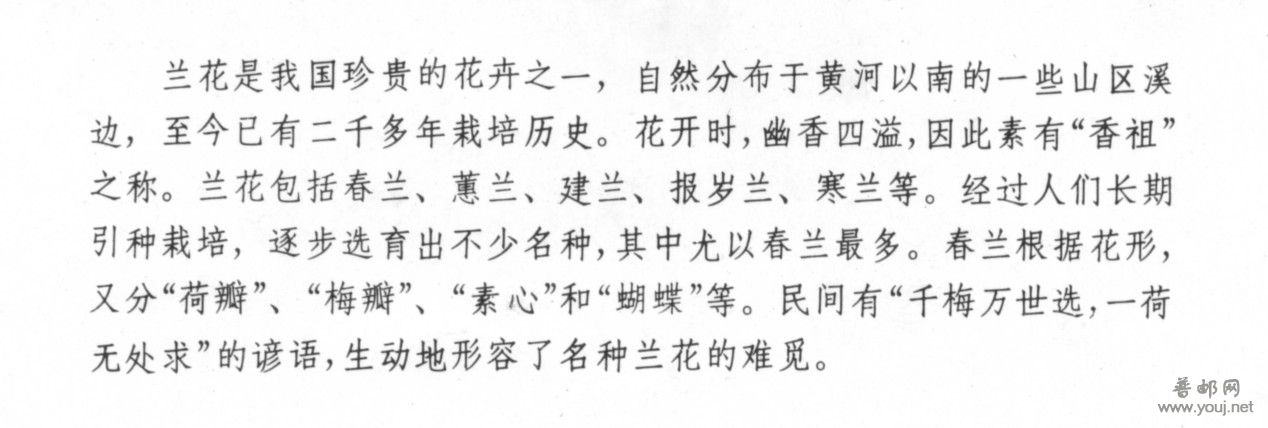 兰花是我国珍贵的花卉之一，自然分布于黄河以南的一些山区溪
边，至今已有二千多年栽培历史。花开时，幽香四溢，因此素有“香祖”
之称。兰花包括春兰、蕙兰、建兰、报岁兰、寒兰等。经过人们长期
引种栽培，逐步选育出不少名种，其中尤以春兰最多。春兰根据花形，
又分“荷瓣”、“梅瓣”、“素心”和“蝴蝶”等。民间有“千梅万世选，一荷
无处求”的谚语，生动地形容了名种兰花的难觅。
普邮网
www.youj.net